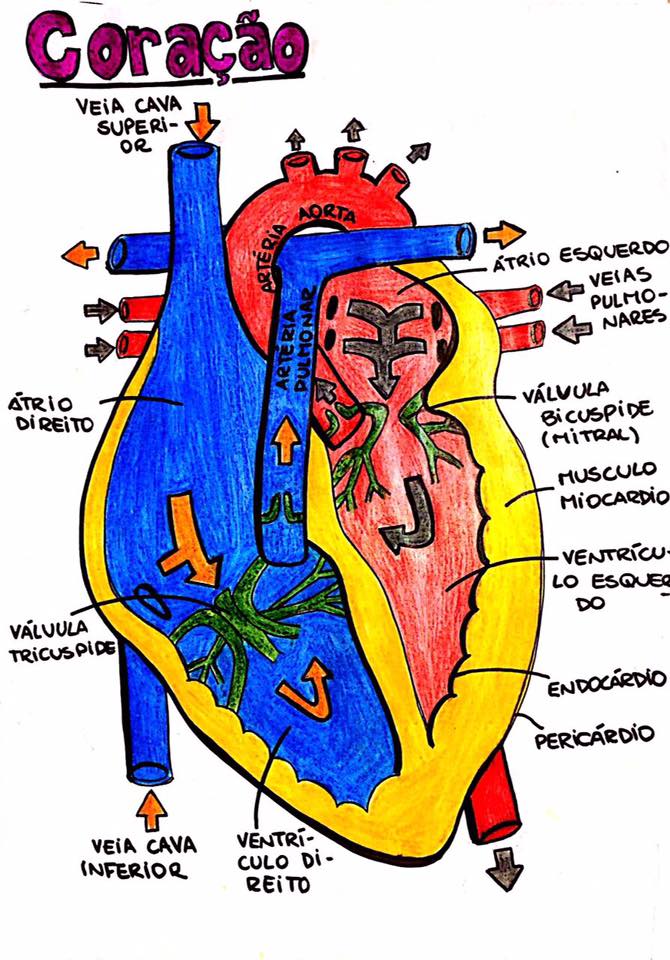 Coração
VEIA CAVA
SUPERI-
OR
ARTÉRIA AORTA
ÁTRIO ESQUERDO
VEIAS
PULMO-
NARES
ARTÉRIA
PULMONAR
ÁTRIO
DIREITO
VÁLVULA
BICUSPIDE
(MITRAL)
MUSCULO
MIOCARDIO
VENTRÍCU-
LO ESQUER
DO
VÁLVULA
TRICUSPIDE
ENDOCÁRDIO
PERICÁRDIO
VEIA CAVA
INFERIOR
VENTRÍ-
CULO DI-
REITO